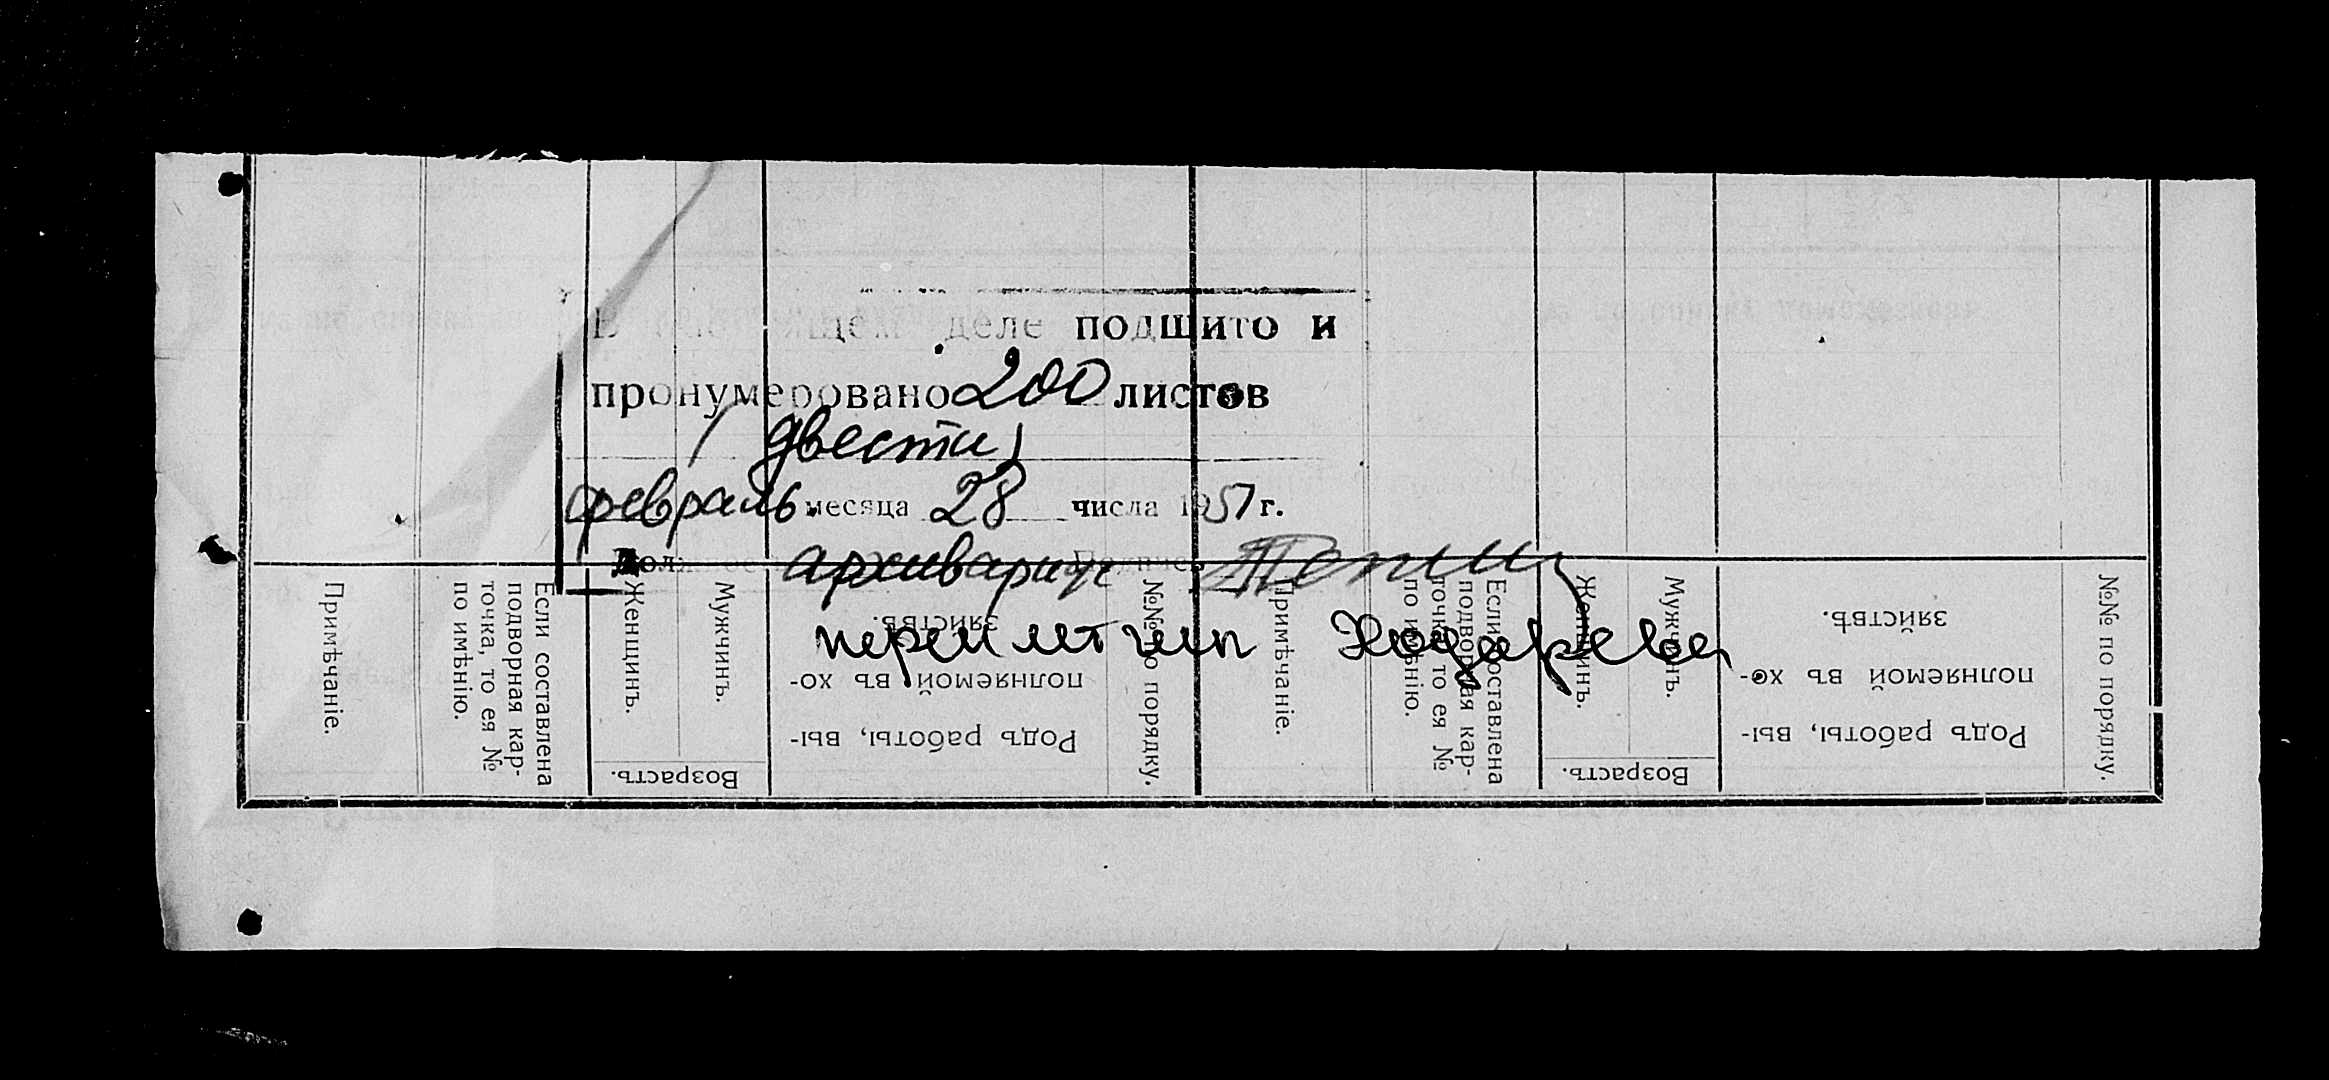 В настоящем деле подшито и
пронумеровано 200 листов
(двести)
февраль месяца 28 числа 1957 г.
Должность архивариус Подпись
Примѣчаніе.
Если составлена
подворная кар-
точка, то ея №
по имѣнію.
Женщинъ.
Мужчинъ.
Возрастъ.
Родъ работы, вы-
полняемой въ хо-
зяйствѣ.
№№ по порядку.
Примѣчаніе.
Если составлена
подворная кар-
точка, то ея №
по имѣнію.
Женщинъ.
Мужчинъ.
Возрастъ.
Родъ работы, вы-
полняемой въ хо-
зяйствѣ.
№№ по порядку.